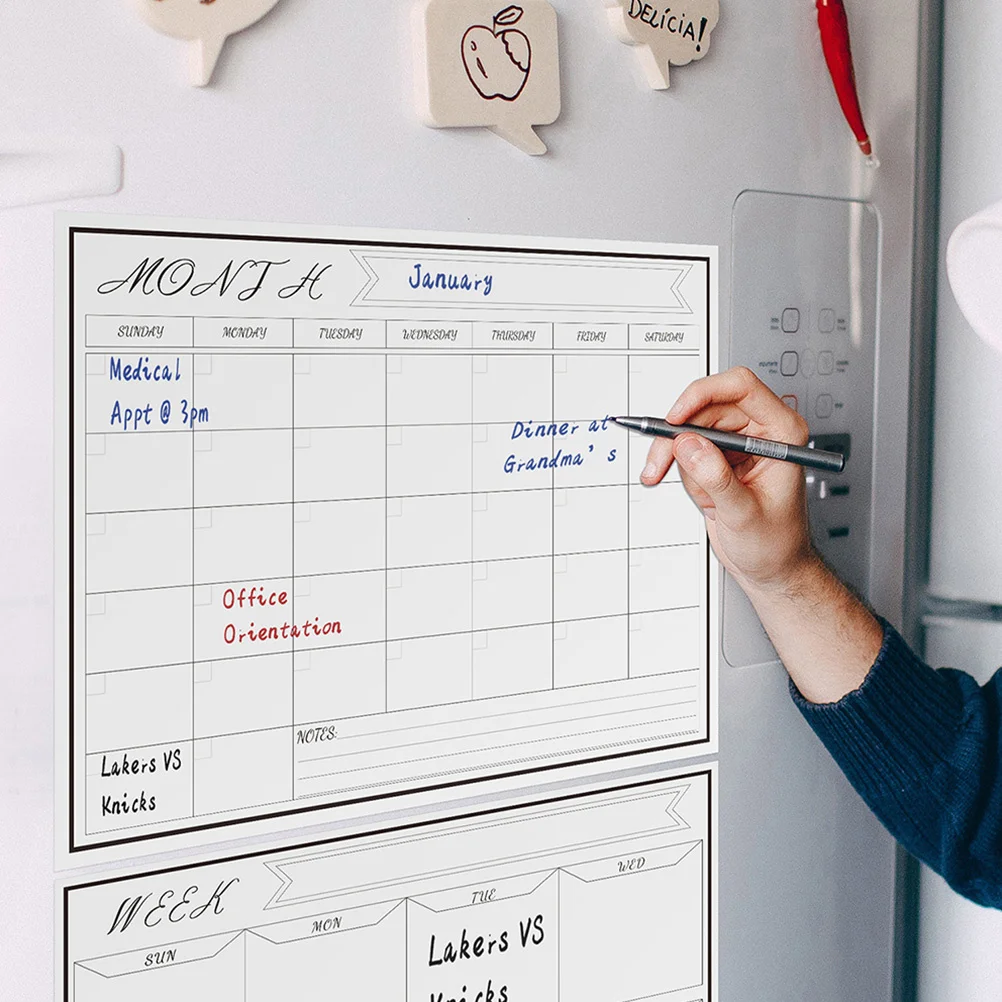 DELÍCIA!
MONTH
January
SUNDAY MONDAY TUESDAY WEDNESDAY THURSDAY FRIDAY SATURDAY
Medical
Appt @ 3pm
Dinner at
Grandma's
Office
Orientation
NOTES:
Lakers VS
Knicks
WEEK
SUN MON TUE WED
Lakers VS
Knicks